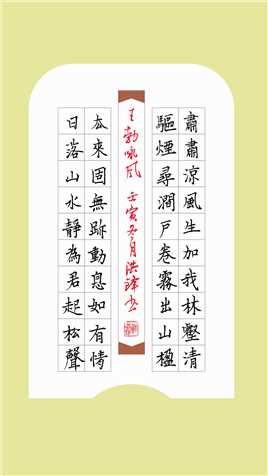 肅肅涼風生加我林壑清
驅煙尋澗戶卷霧出山楹
王勃咏风 壬寅冬月洪书
厺來固無跡動息如有情
日落山水靜為君起松聲